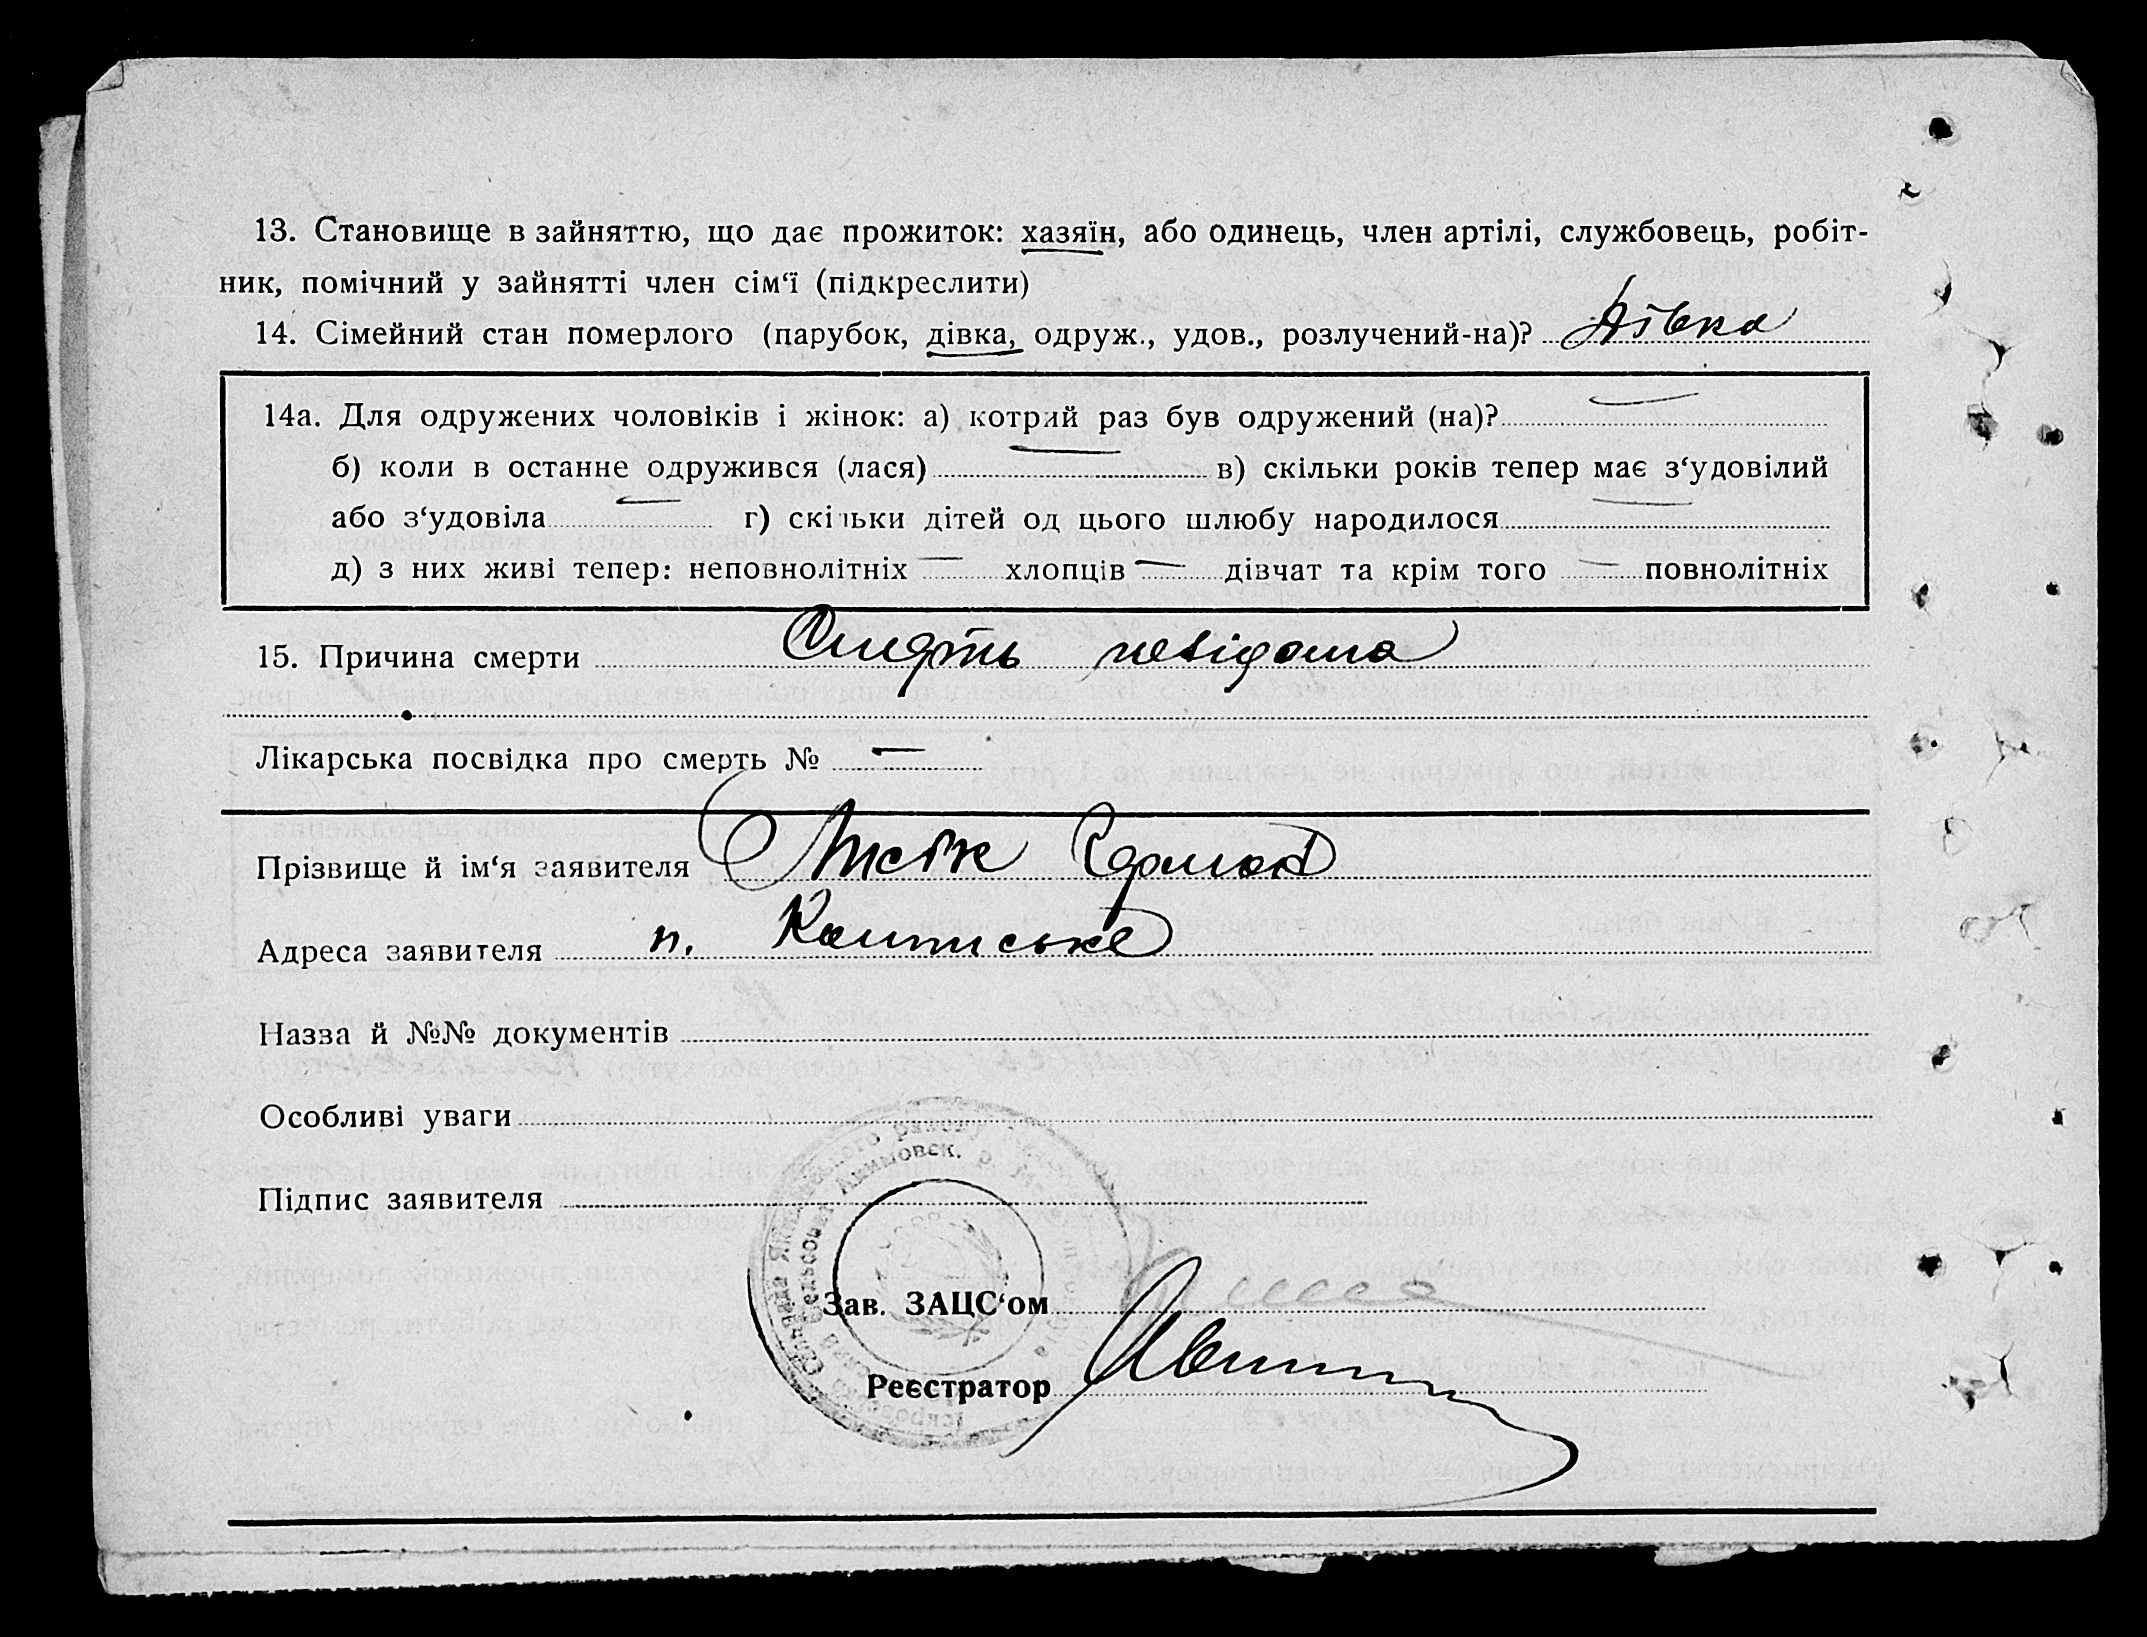 13. Становище в зайняттю, що дає прожиток: хазяїн, або одинець, член артілі, службовець, робіт-
ник, помічний у зайнятті член сім‘ї (підкреслити)
14. Сімейний стан померлого (парубок, дівка, одруж., удов., розлучений-на)? Дівка
14а. Для одружених чоловіків і жінок: а) котрий раз був одружений (на)? —
б) коли в останне одружився (лася) — в) скільки років тепер має з‘удовілий
або з‘удовіла — г) скільки дітей од цього шлюбу народилося —
д) з них живі тепер: неповнолітніх — хлопців — дівчат та крім того — повнолітніх
15. Причина смерти Смерть невідома
Лікарська посвідка про смерть № —
Прізвище й ім‘я заявителя
Адреса заявителя п.
Назва й №№ документів
Особливі уваги
Підпис заявителя
Зав. ЗАЦС‘ом
Реєстратор